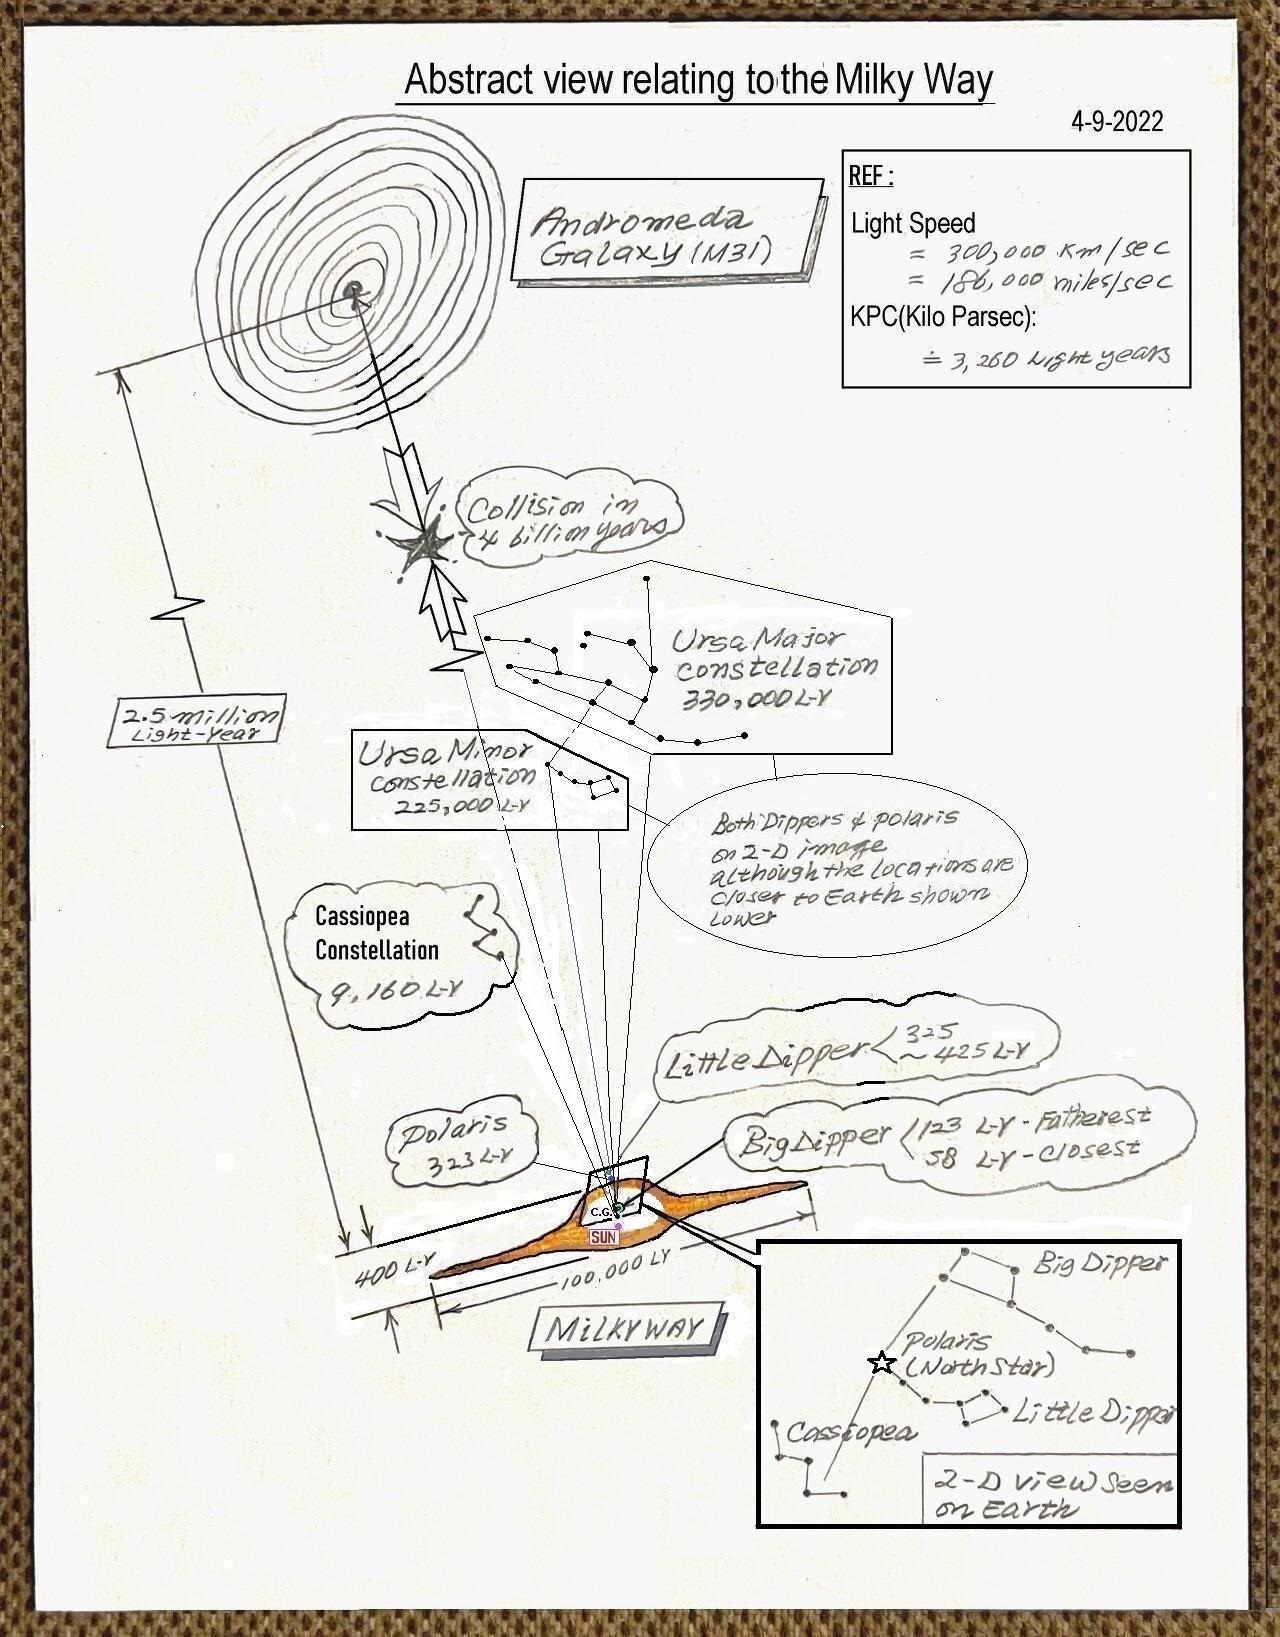 Abstract view relating to the Milky Way
4-9-2022
REF :
Light Speed
= 300,000 Km/sec
= 186,000 miles/sec
KPC(Kilo Parsec):
≐ 3,260 Light years
Andromeda
Galaxy (M31)
Collision in
4 billion years
Ursa Major
constellation
330,000 L-Y
2.5 million
Light-Year
Ursa Minor
constellation
225,000 L-Y
Both Dippers & polaris
on 2-D image
although the locations are
closer to Earth shown
Lower
Cassiopea
Constellation
9,160 L-Y
Little Dipper < 325
~ 425 L-Y
Polaris
323 L-Y
Big Dipper < 123 L-Y - Fatherest
58 L-Y - Closest
C.G.
SUN
400 L-Y
100,000 LY
MILKYWAY
Big Dipper
Polaris
(North Star)
Little Dipper
Cassiopea
2-D view Seen
on Earth